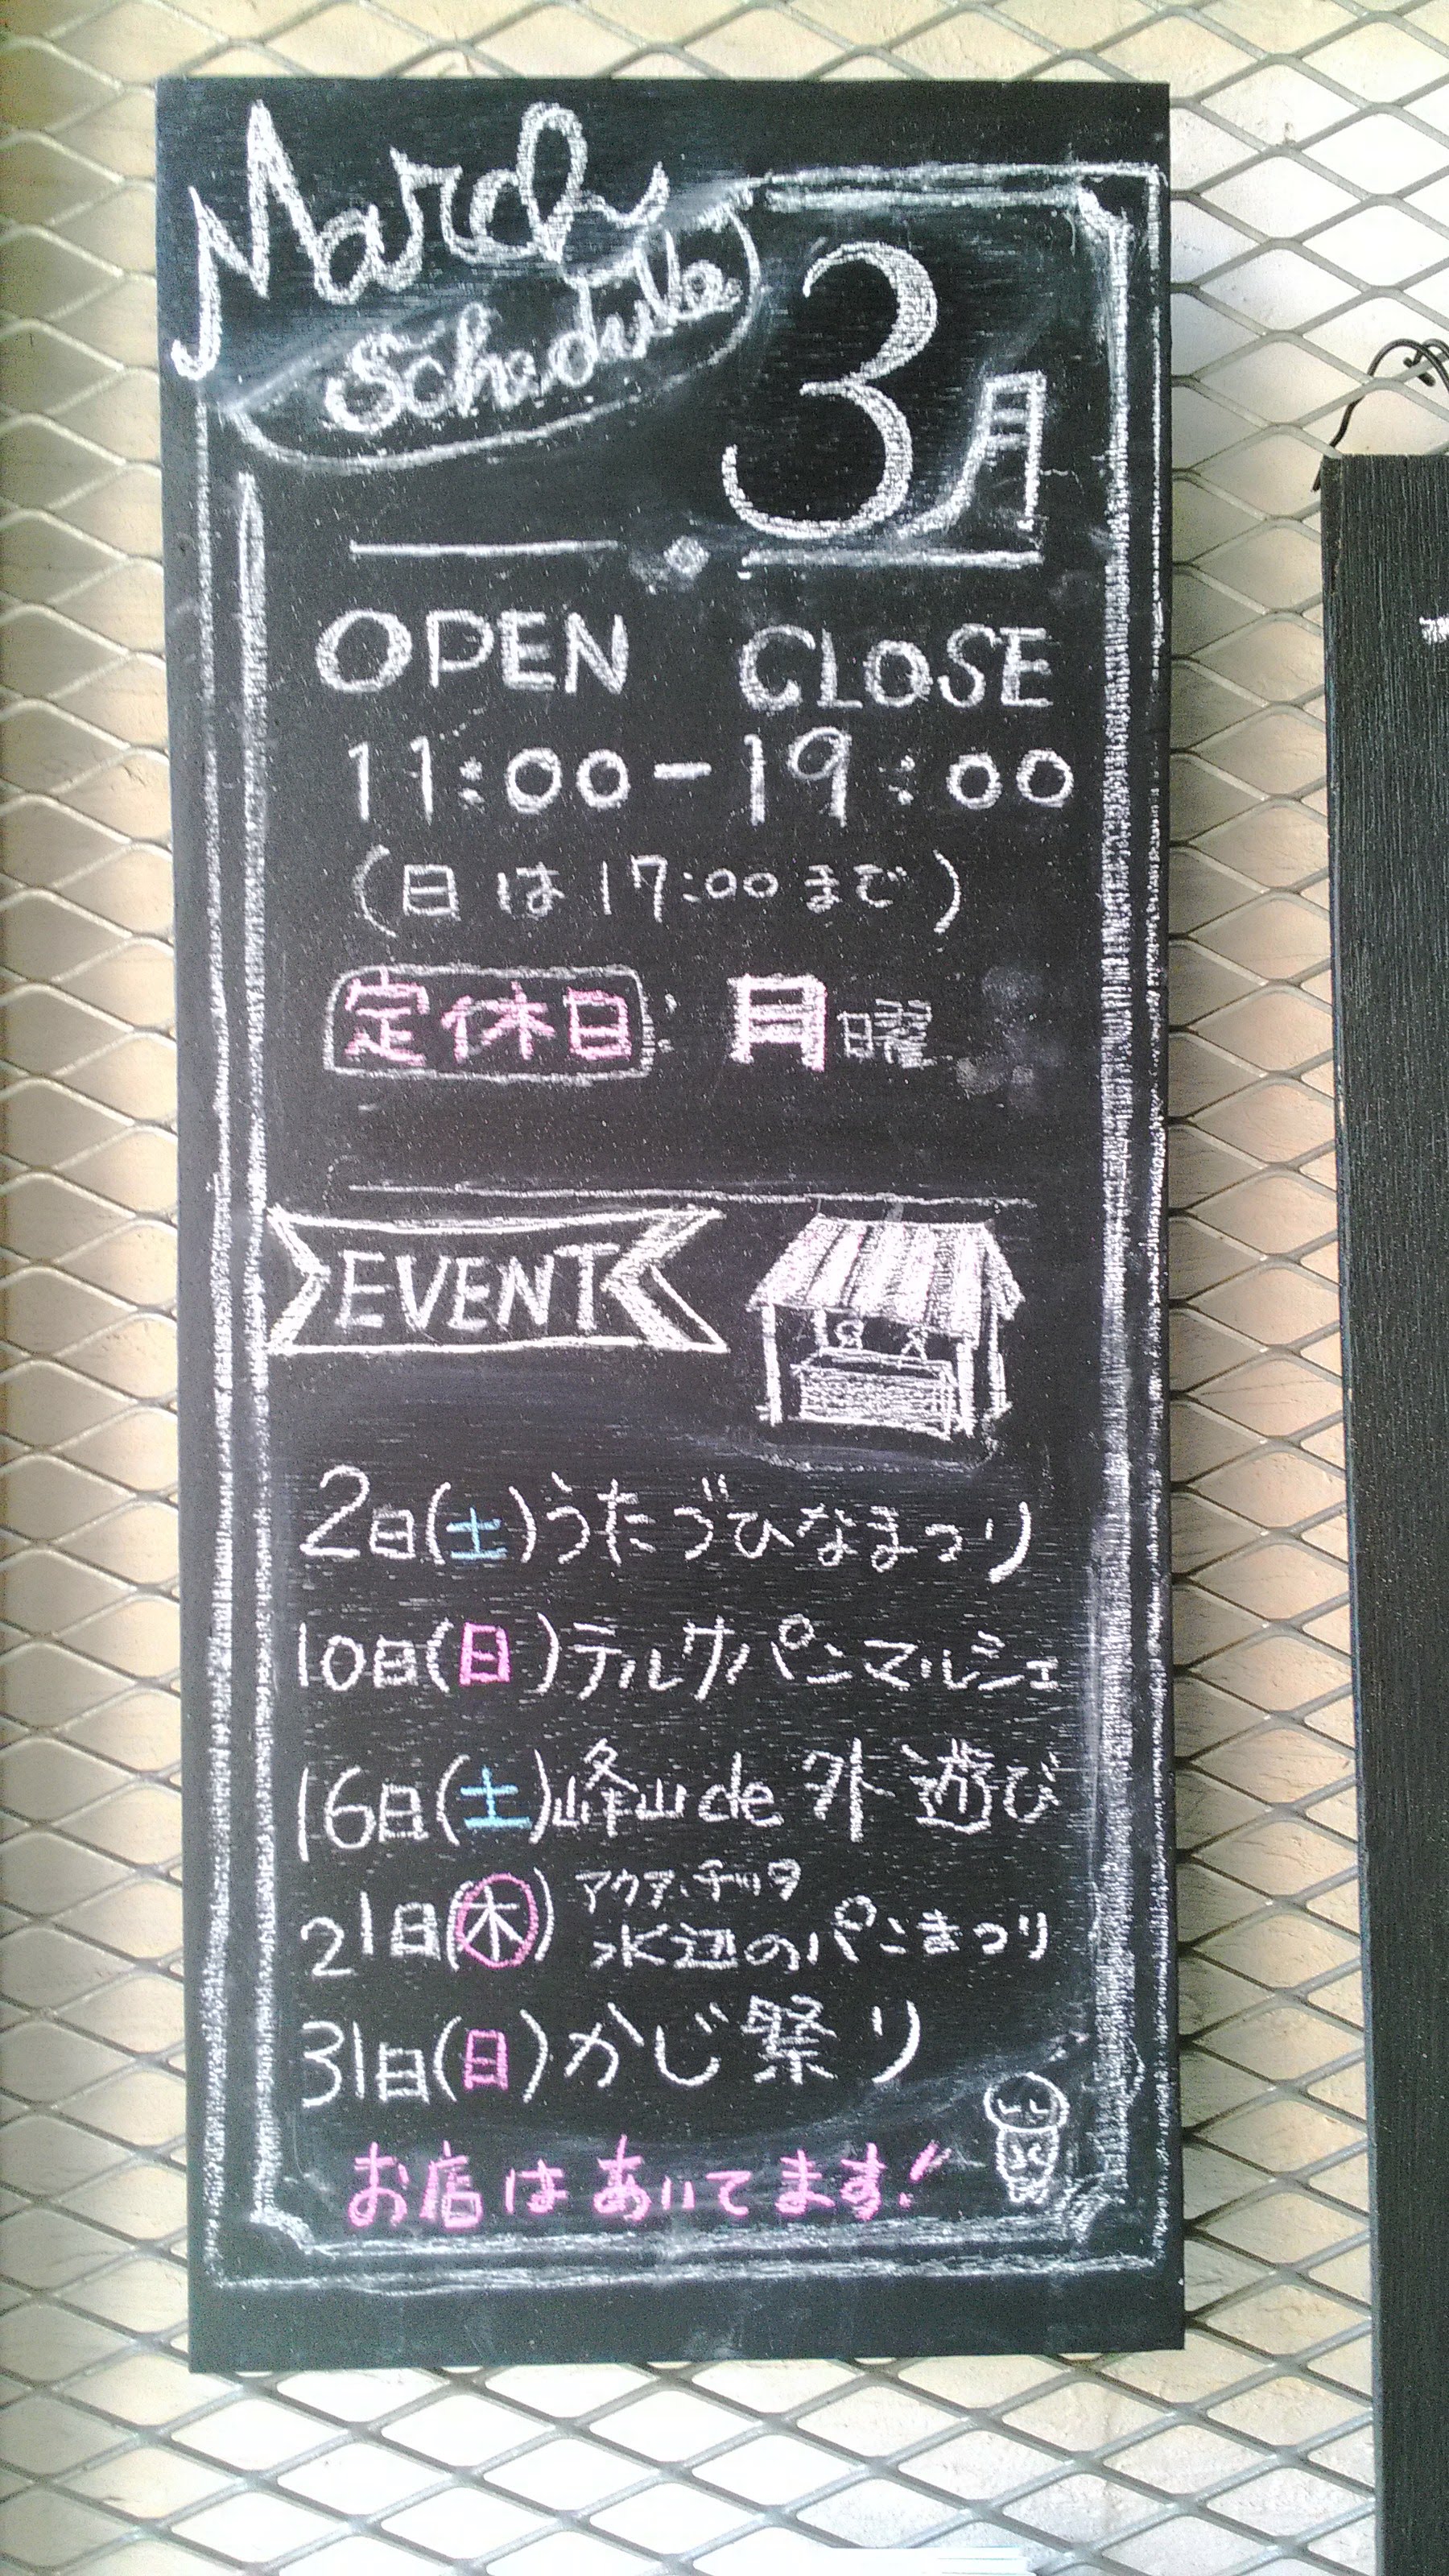 March
Schedule
3月
OPEN CLOSE
11:00-19:00
(日は17:00まで)
定休日: 月曜
EVENT
2日(土)うたづひなまつり
10日(日)テルサパンマルシェ
16日(土)峰山de外遊び
21日(木)アクア・チッタ
水辺のパンまつり
31日(日)かじ祭り
お店はあいてます!